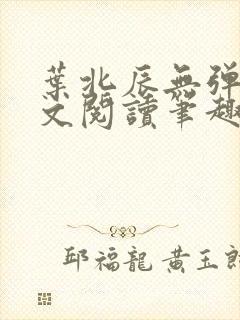 葉北辰無彈
文閱讀筆趣
邱福龍 黃玉郎